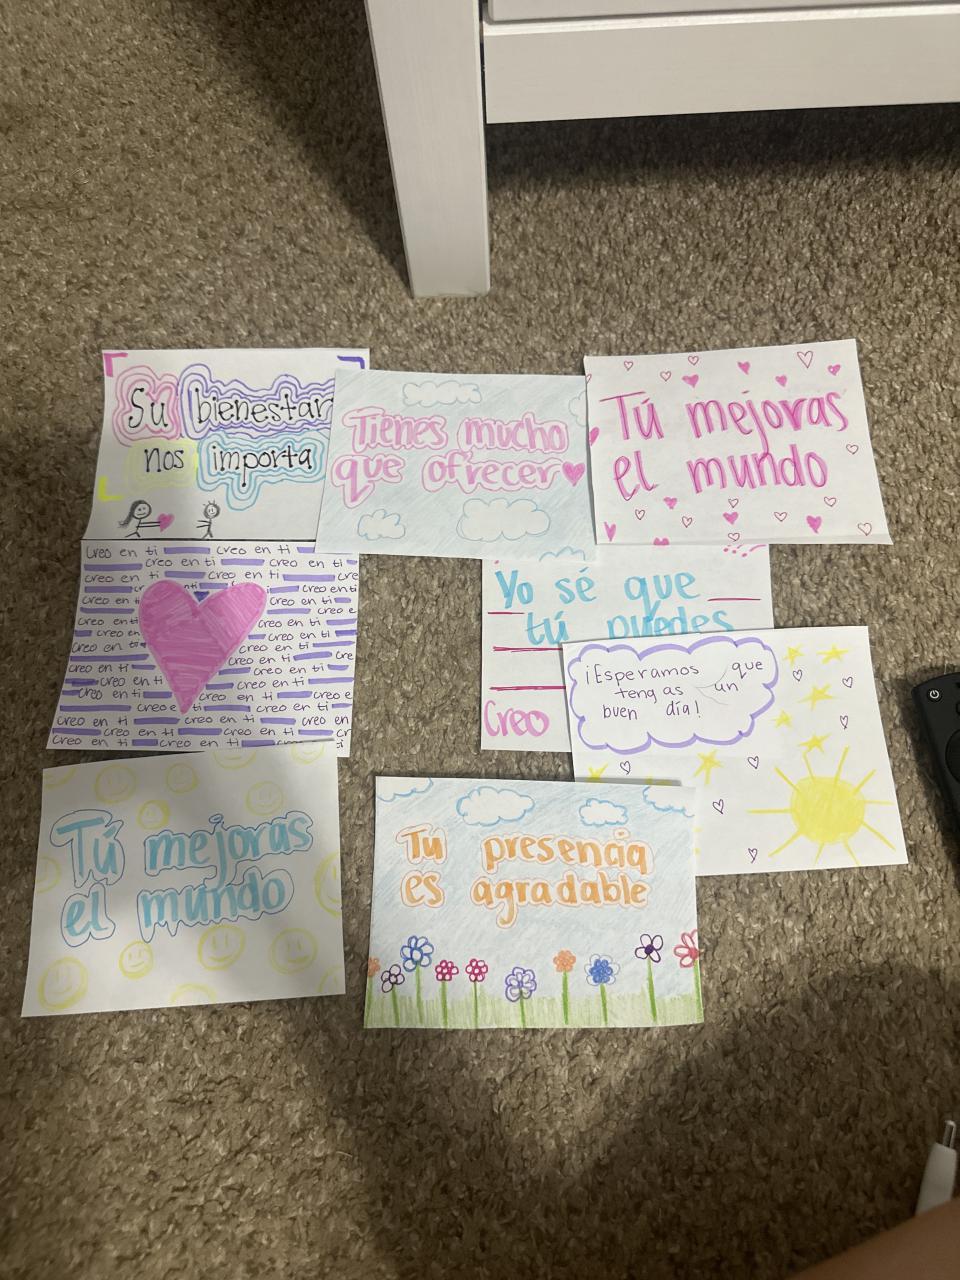 Su bienestar
nos importa
Tienes mucho
que ofrecer
Tú mejoras
el mundo
Creo en ti creo en ti
creo en ti creo en ti
creo en ti creo en ti cre
creo en ti creo en ti
creo en ti creo en ti
creo en ti creo e
creo en ti creo en ti
creo en creo en ti
creo en ti creo en ti cre
creo en ti creo en ti
creo en ti creo en ti
creo en ti creo en ti
creo en ti creo en ti creo e
creo en ti creo en ti
creo en ti creo en ti creo en
creo en ti creo en ti
creo en ti creo en ti cr
Yo sé que
tú puedes
Creo
¡Esperamos que
tengas un
buen día!
Tú mejoras
el mundo
Tu presencia
es agradable